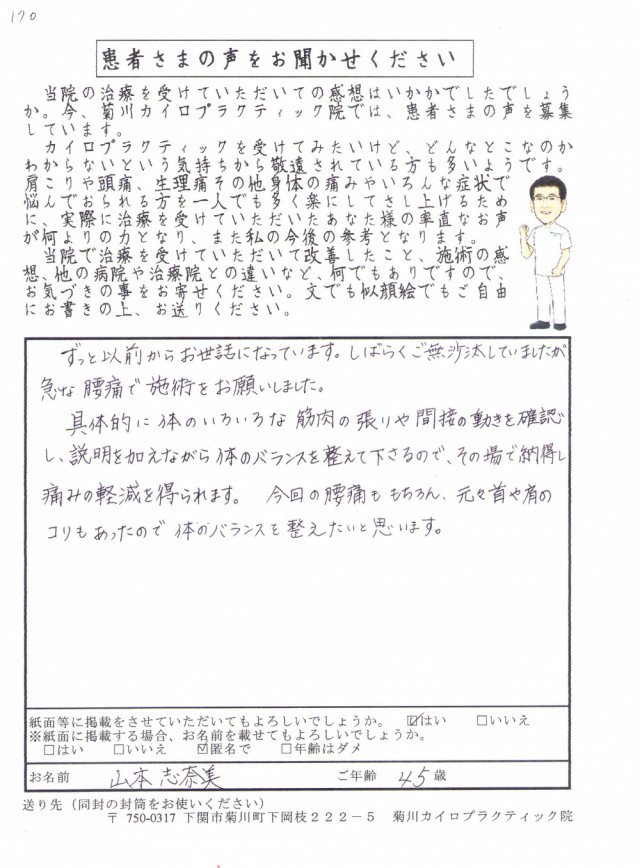 170
患者さまの声をお聞かせください
当院の治療を受けていただいての感想はいかがでしたでしょう
か。今、菊川カイロプラクティック院では、患者さまの声を募集
しています。
カイロプラクティックを受けてみたいけど、どんなとこなのか
わからないという気持ちから敬遠されている方も多いようです。
肩こりや頭痛、生理痛その他身体の痛みやいろんな症状で
悩んでおられる方を一人でも多く楽にしてさし上げるため
に、実際に治療を受けていただいたあなた様の率直なお声
が何よりの力となり、また私の今後の参考となります。
当院で治療を受けていただいて改善したこと、施術の感
想、他の病院や治療院との違いなど、何でもありですので、
お気づきの事をお寄せください。文でも似顔絵でもご自由
にお書きの上、お送りください。
ずっと以前からお世話になっています。しばらくご無沙汰していましたが
急な腰痛で施術をお願いしました。
具体的に体のいろいろな筋肉の張りや間接の動きを確認
し、説明を加えながら体のバランスを整えて下さるので、その場で納得し
痛みの軽減を得られます。 今回の腰痛ももちろん、元々首や肩の
コリもあったので体のバランスを整えたいと思います。
紙面等に掲載をさせていただいてもよろしいでしょうか。 ☑はい □いいえ
※紙面に掲載する場合、お名前を載せてもよろしいでしょうか。
□はい □いいえ ☑匿名で □年齢はダメ
お名前 山本 志奈美 ご年齢 45歳
送り先（同封の封筒をお使いください）
〒 750-0317 下関市菊川町下岡枝２２２－５ 菊川カイロプラクティック院